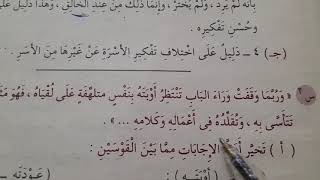 بأنه لم يرد ، ولم يختر ، وإنما ذلك من عند الخالق ، وهذا دليل على
وحسن تفكيره
(جـ) ٤ – دليل على اختلاف تفكير الأسرة عن غيرها من الأسر .
س٢ « وربما وقفت وراء الباب تنتظر أوبته بنفس متلهفة ، فهو
تتأسى به ، وتقلده فى أعماله وكلامه ... » .
( أ ) تخير الإجابات مما بين القوسين :
أوبته عودته